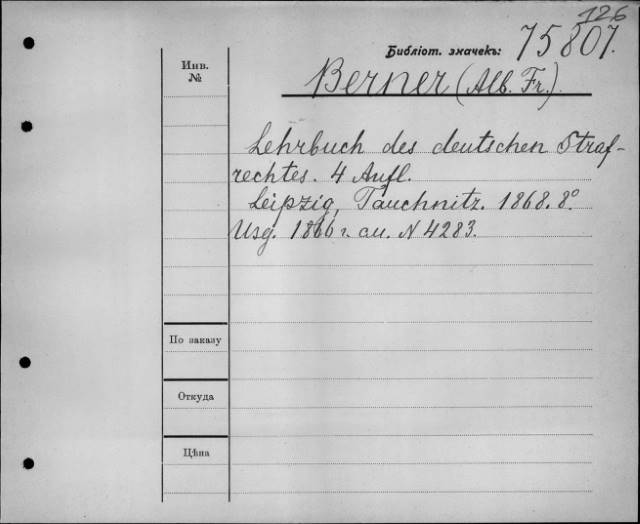 126
Библіот. значекъ: 75807.
Инв.
№
Berner (Alb. Fr.)
Lehrbuch des deutschen Straf-
rechtes. 4 Aufl.
Leipzig, Tauchnitz. 1868. 8°
Изд. 1866 г. см. N 4283.
По заказу
Откуда
Цѣна